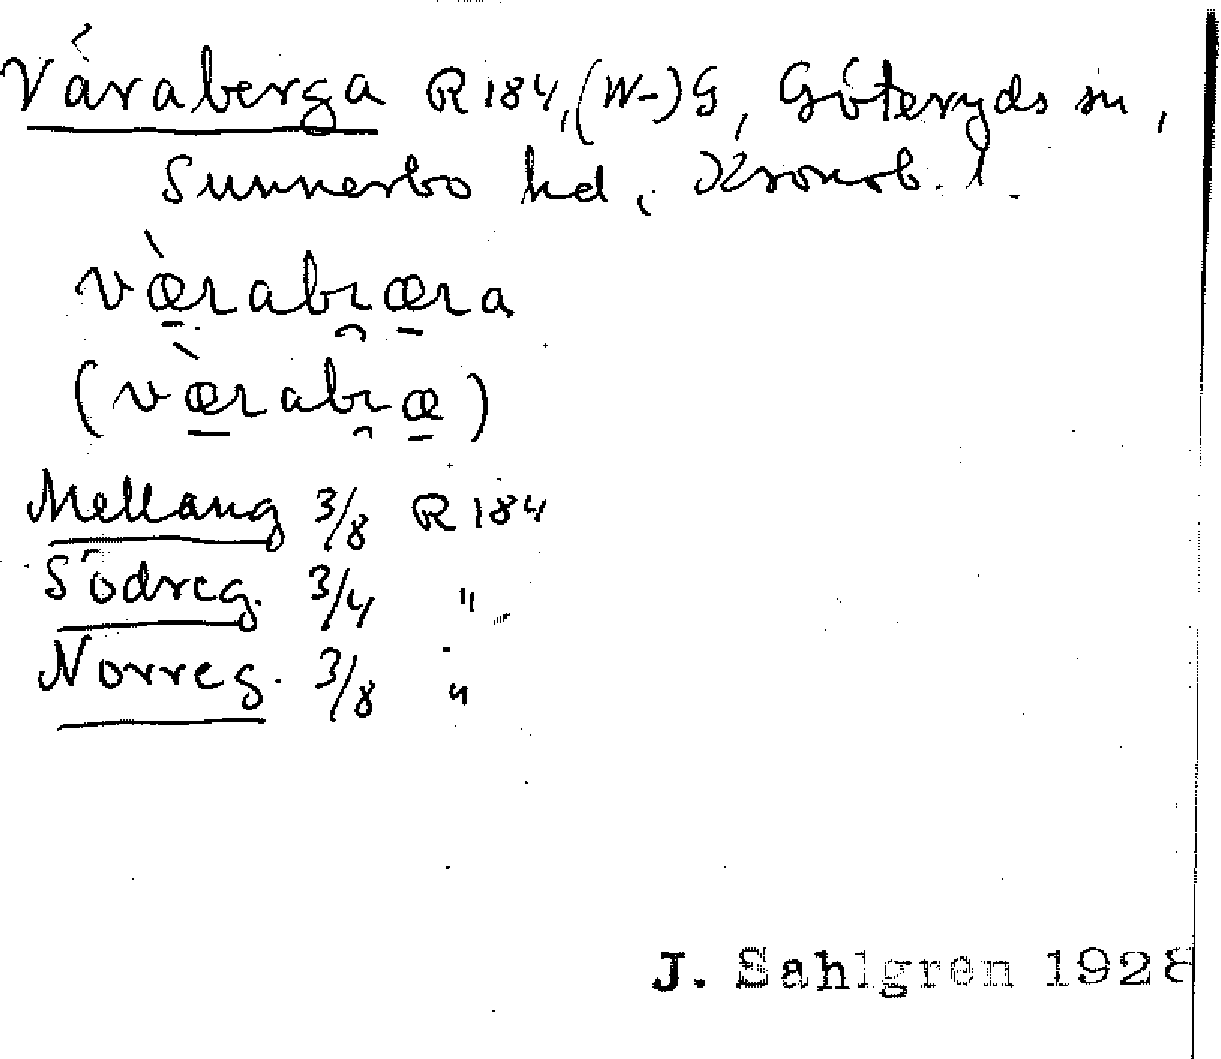 Våraberga R 184, (W-) G, Göteryds sn,
Sunnerbo hd, Kronob. l.
væ̀rabræra
(væ̀rabræ)
Mellang 3/8 R 184
Södreg. 3/4 "
Norreg. 3/8 "
J. Sahlgren 1928